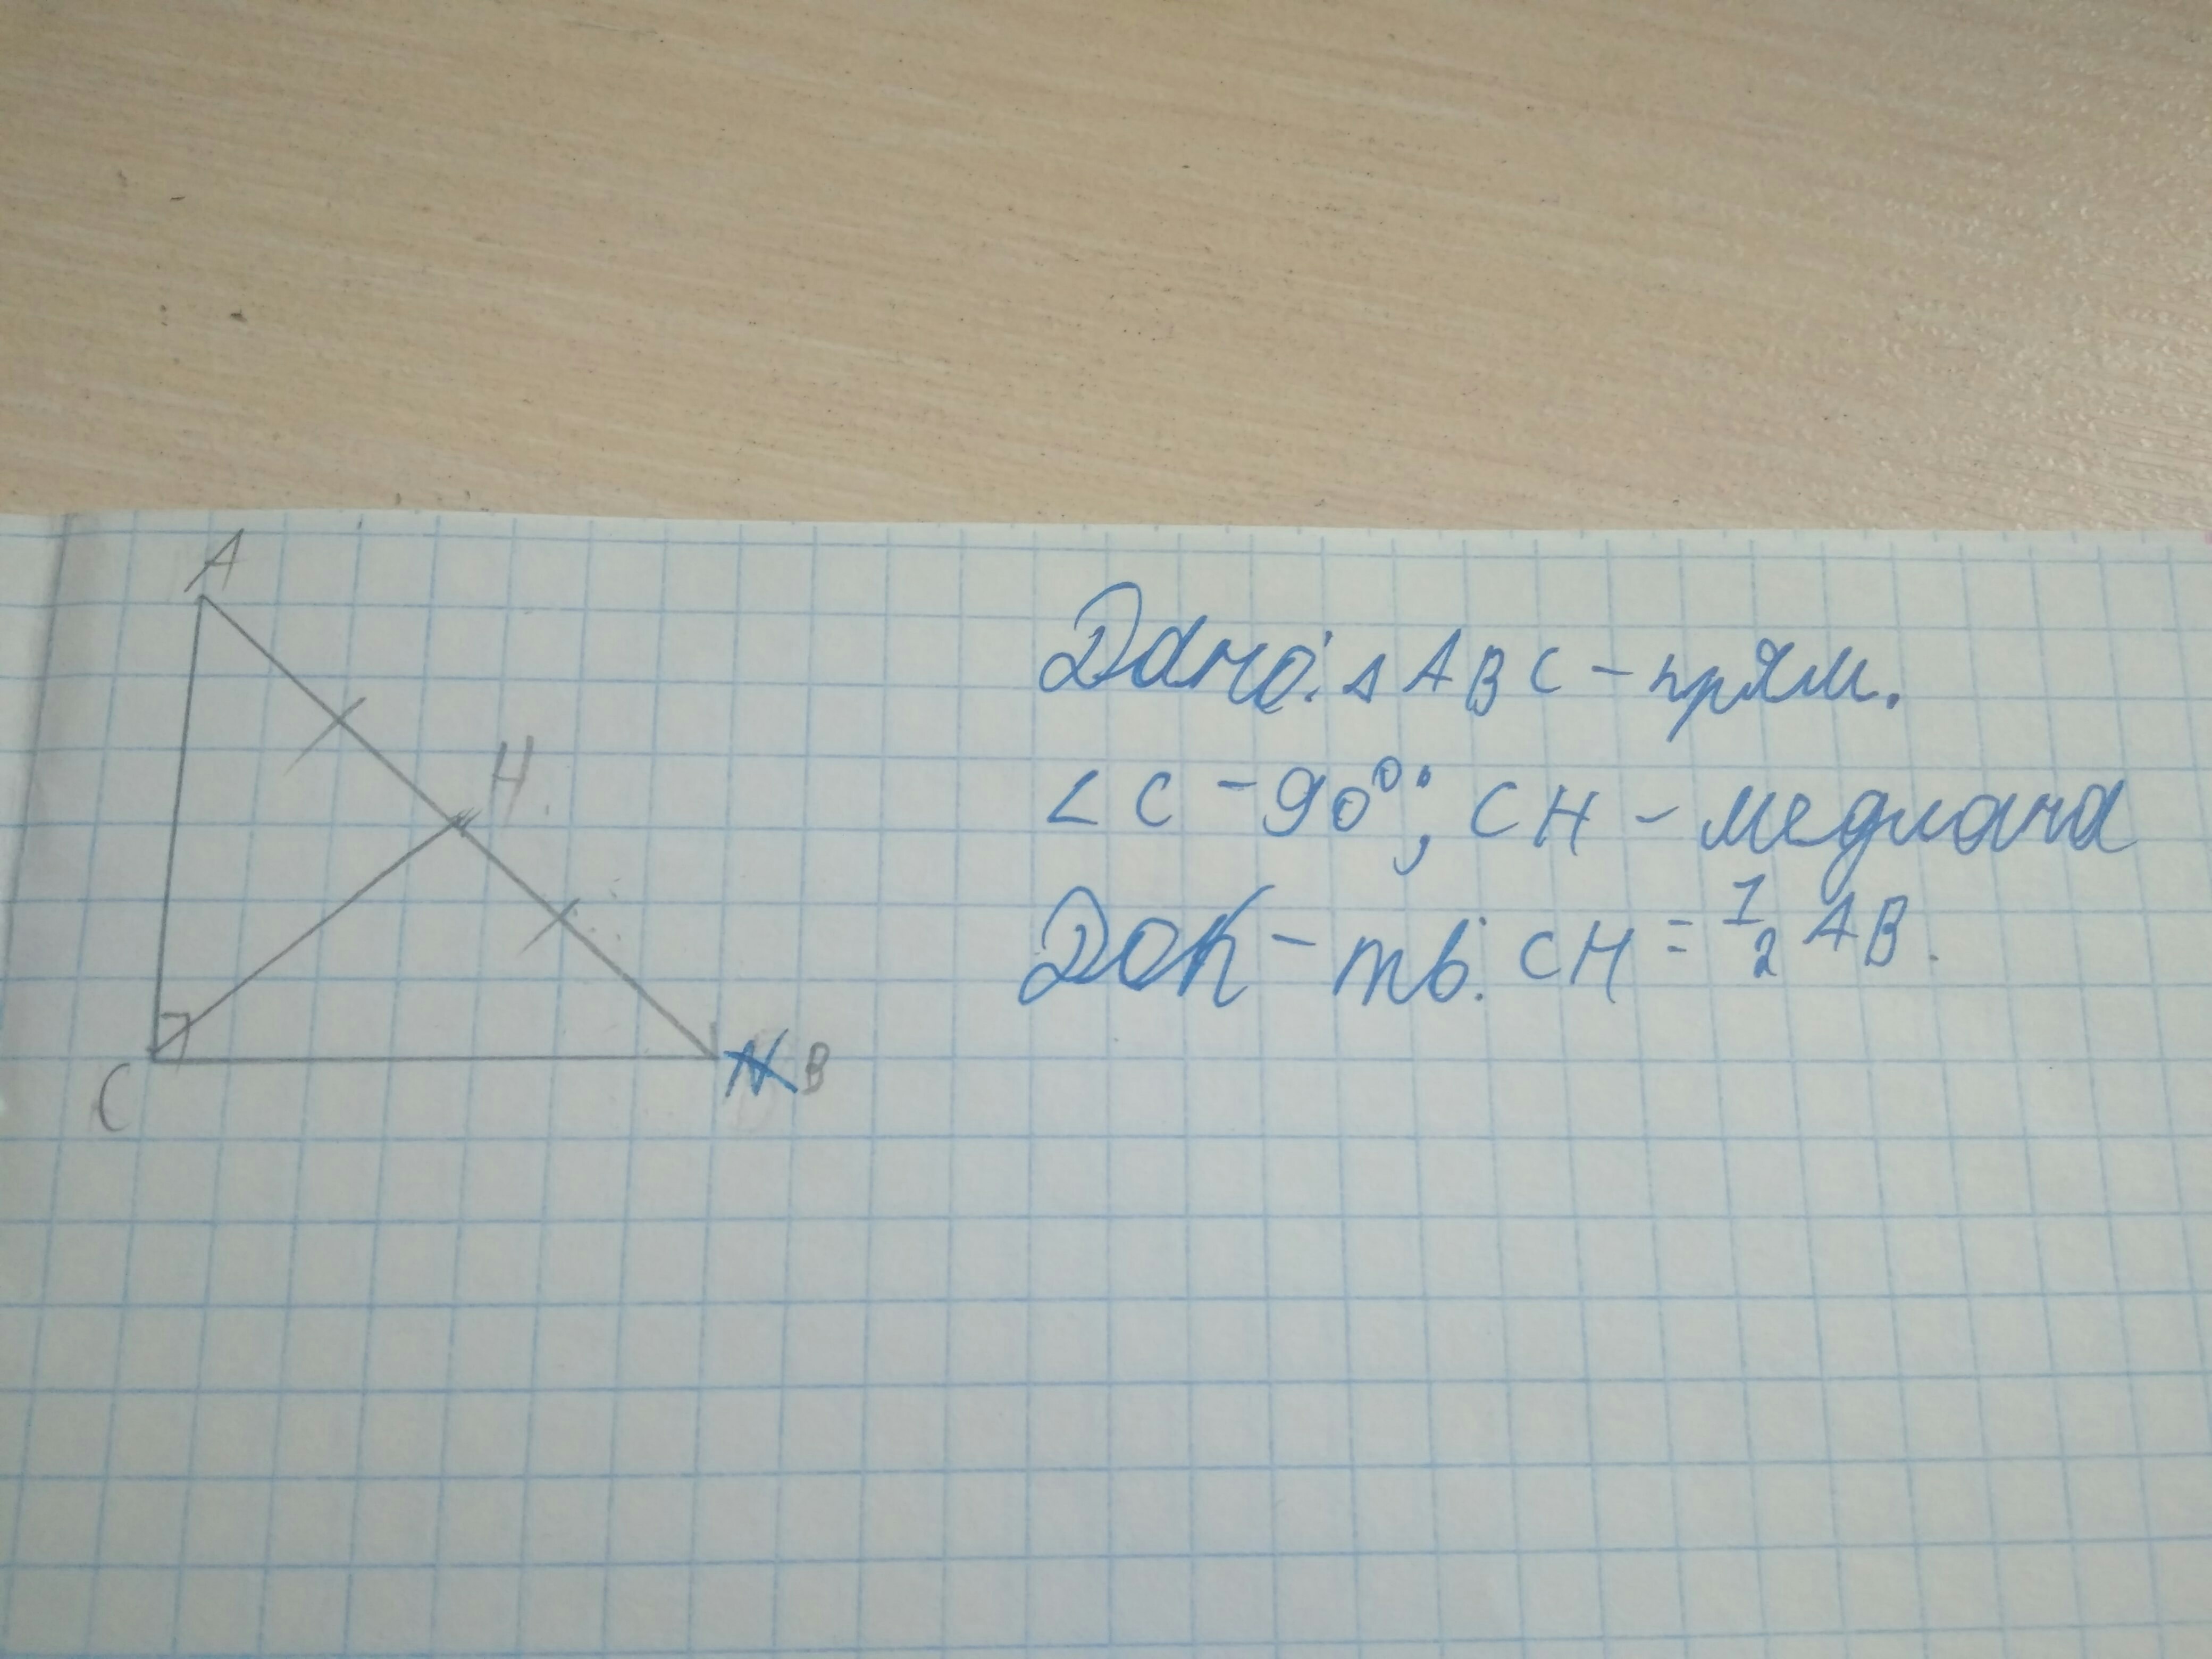 A
H
C
B
Дано: △ABC - прям.
∠C - 90°; CH - медиана
Док-ть: CH = 1/2 AB.